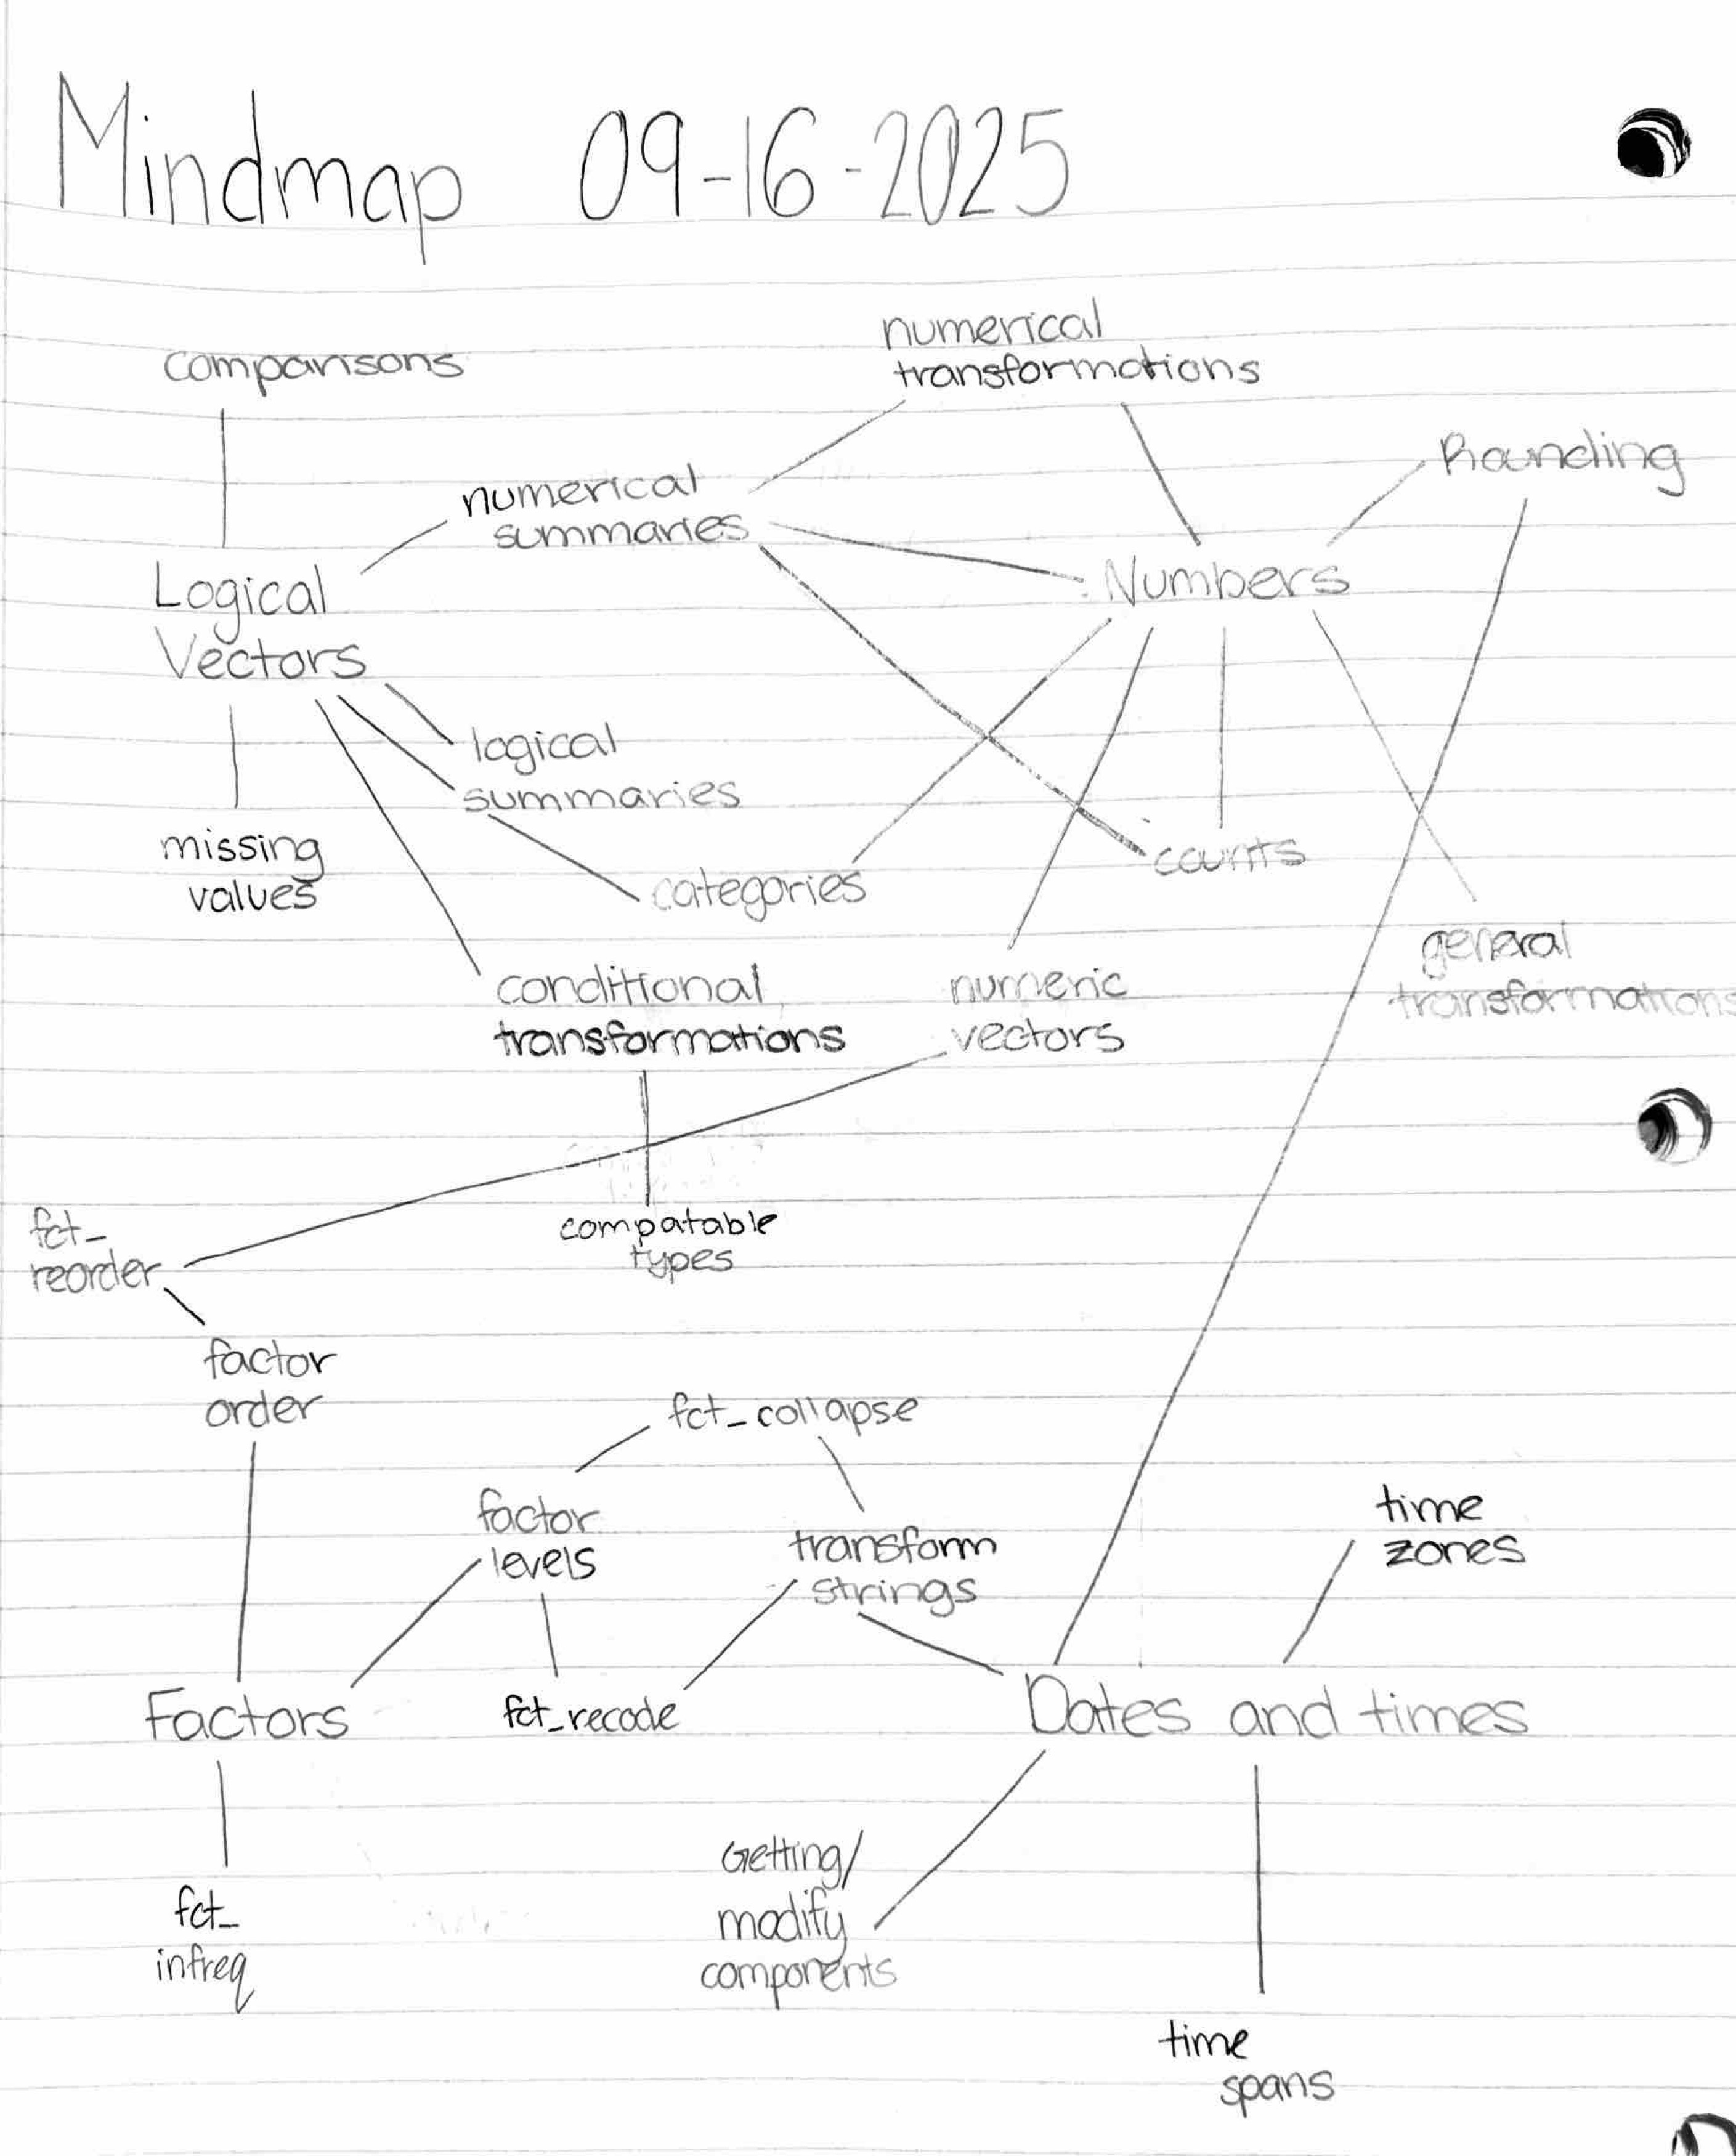 Mindmap 09-16-2025
numerical
transformations
comparisons
Rounding
numerical
summaries
Numbers
Logical
Vectors
logical
summaries
missing
values
categories
counts
general
transformations
conditional
transformations
numeric
vectors
fct_
reorder
compatable
types
factor
order
fct_collapse
factor
levels
transform
strings
time
zones
Factors
fct_recode
Dates and times
Getting/
modify
components
fct_
infreq
time
spans